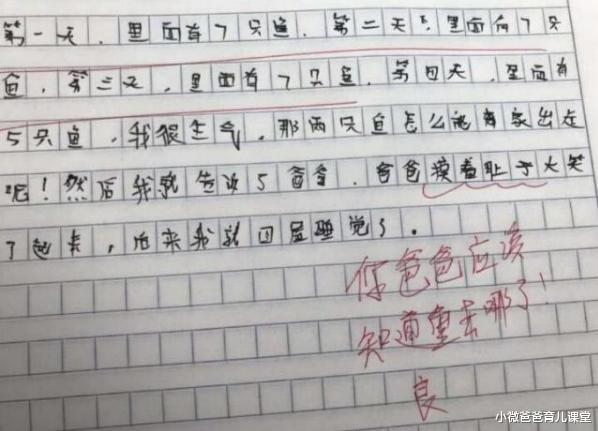 第一天，里面有7只鱼，第二天，里面有7只
鱼，第三天，里面有7只鱼，第四天，里面有
5只鱼，我很生气，那两只鱼怎么能离家出走
呢！然后我就告诉了爸爸，爸爸漠着肚子大笑
了起来，后来我就回屋睡觉了。
你爸爸应该
知道鱼去哪了！
良
小微爸爸育儿课堂